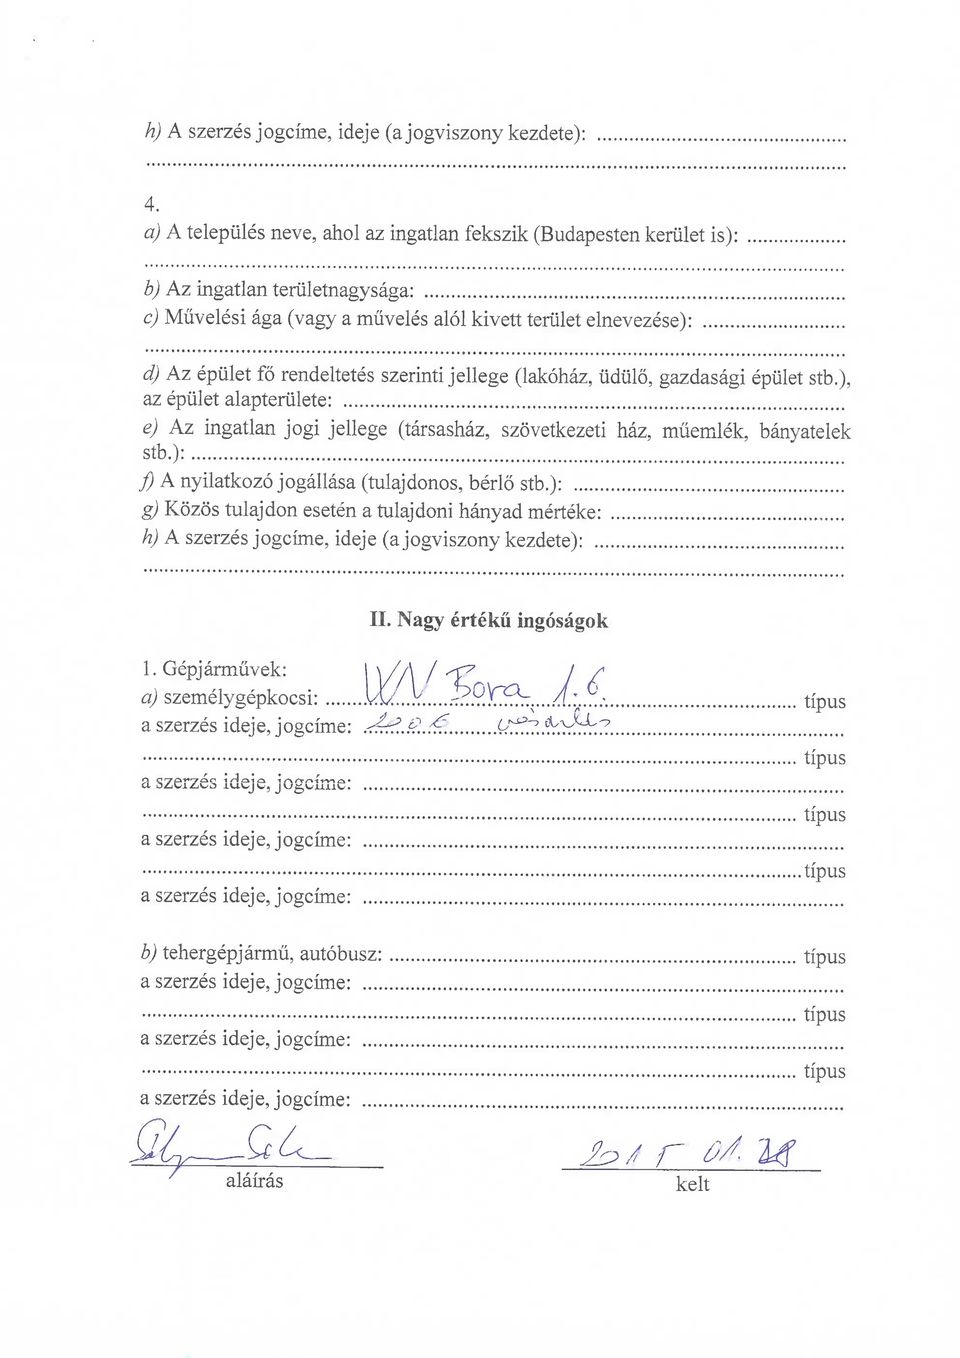 h) A szerzés jogcíme, ideje (a jogviszony kezdete): ..............................................
..............................................................................................................................
4.
a) A település neve, ahol az ingatlan fekszik (Budapesten kerület is): ..................
..............................................................................................................................
b) Az ingatlan területnagysága: ..............................................................................
c) Művelési ága (vagy a művelés alól kivett terület elnevezése): ..........................
..............................................................................................................................
d) Az épület fő rendeltetés szerinti jellege (lakóház, üdülő, gazdasági épület stb.),
az épület alapterülete: ............................................................................................
e) Az ingatlan jogi jellege (társasház, szövetkezeti ház, műemlék, bányatelek
stb.): ........................................................................................................................
f) A nyilatkozó jogállása (tulajdonos, bérlő stb.): ..................................................
g) Közös tulajdon esetén a tulajdoni hányad mértéke: ...........................................
h) A szerzés jogcíme, ideje (a jogviszony kezdete): ..............................................
..............................................................................................................................
II. Nagy értékű ingóságok
1. Gépjárművek:
a) személygépkocsi: ....... WV Bora 1.6. ....... típus
a szerzés ideje, jogcíme: 2006 vásárlás
........................................................................................................................ típus
a szerzés ideje, jogcíme: ........................................................................................
........................................................................................................................ típus
a szerzés ideje, jogcíme: ........................................................................................
........................................................................................................................ típus
a szerzés ideje, jogcíme: ........................................................................................
b) tehergépjármű, autóbusz: .......................................................................... típus
a szerzés ideje, jogcíme: ........................................................................................
........................................................................................................................ típus
a szerzés ideje, jogcíme: ........................................................................................
........................................................................................................................ típus
a szerzés ideje, jogcíme: ........................................................................................
2015 01. 28
aláírás kelt